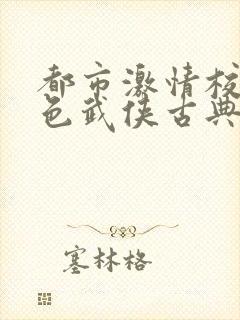 都市激情校
色武侠古典
塞林格